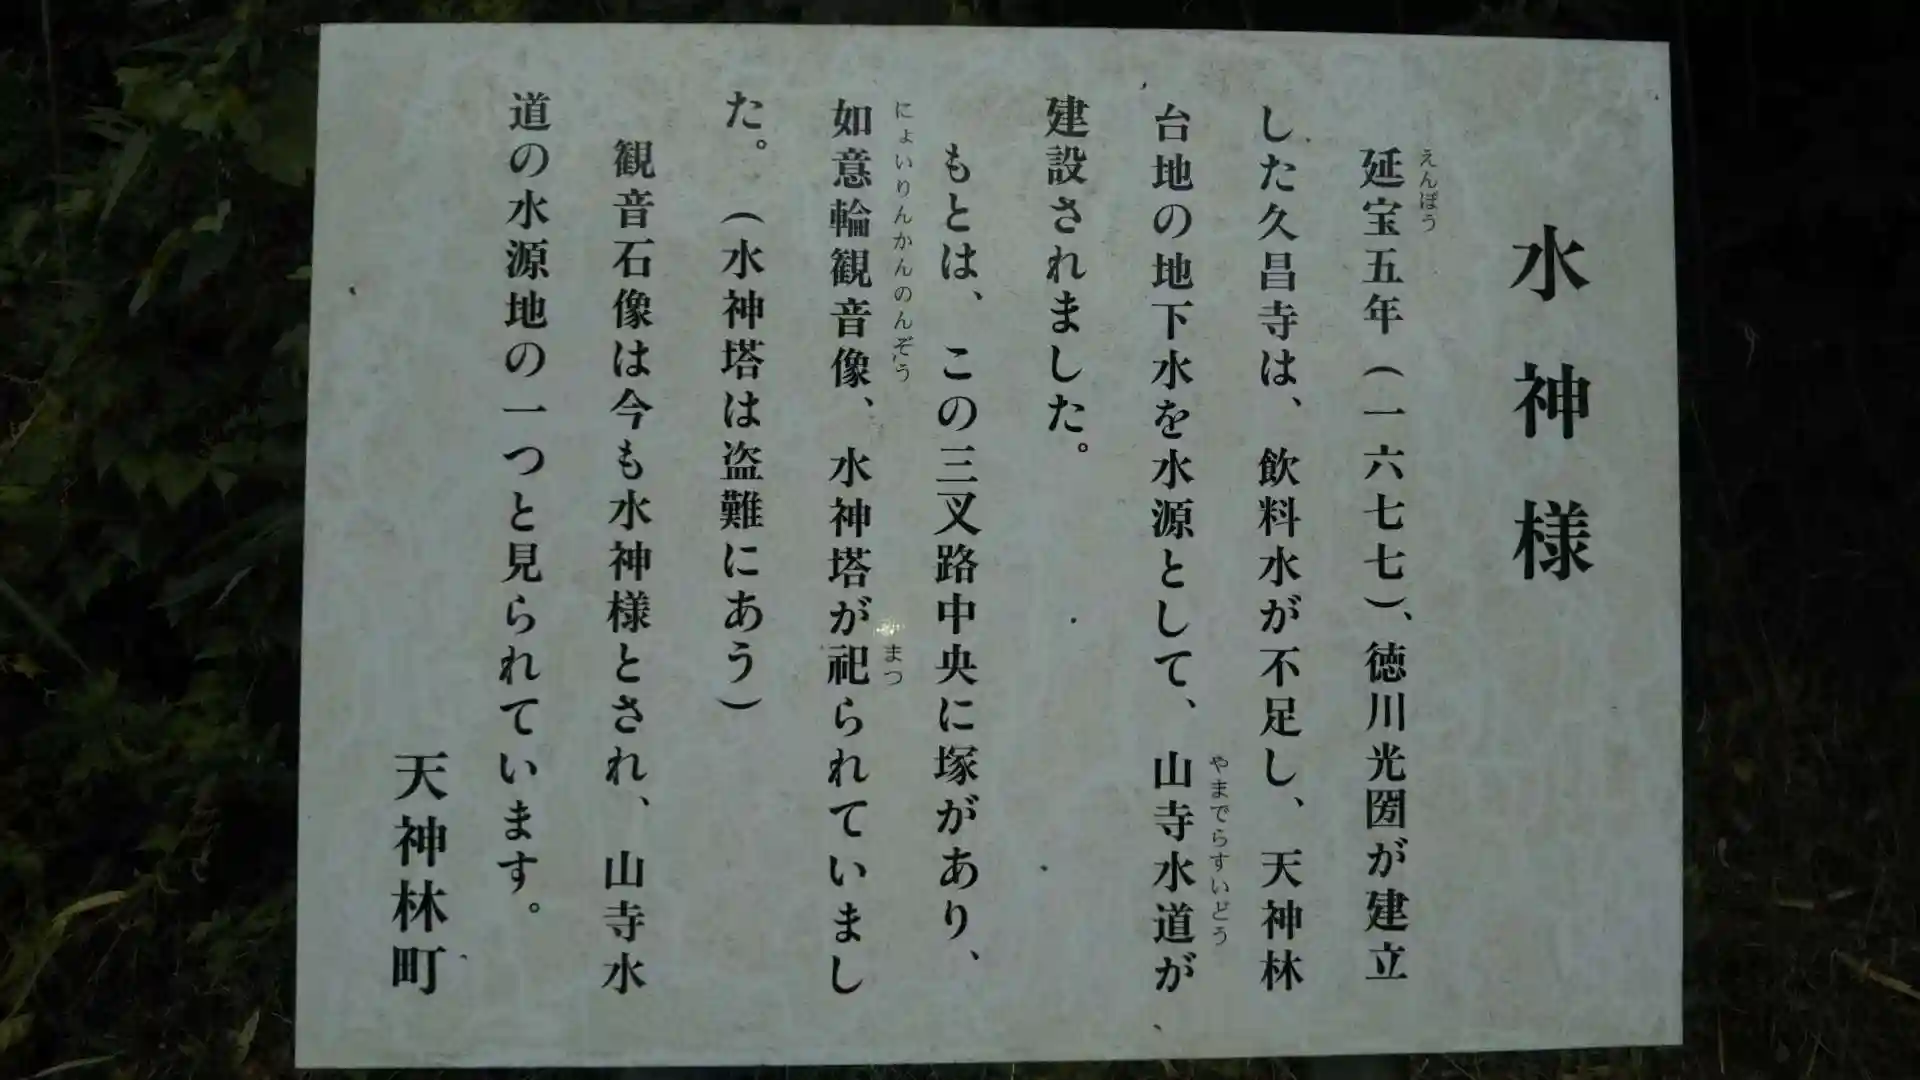 水神様
延宝五年(一六七七)、徳川光圀が建立
えんぽう
した久昌寺は、飲料水が不足し、天神林
台地の地下水を水源として、山寺水道が
やまでらすいどう
建設されました。
もとは、この三叉路中央に塚があり、
如意輪観音像、水神塔が祀られていまし
にょいりんかんのんぞう
まつ
た。(水神塔は盗難にあう)
観音石像は今も水神様とされ、山寺水
道の水源地の一つと見られています。
天神林町